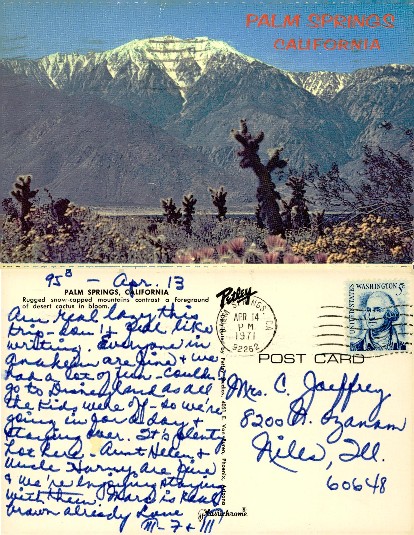 PALM SPRINGS
CALIFORNIA
95° - Apr. 13
PALM SPRINGS, CALIFORNIA
Rugged snow-capped mountains contrast a foreground
of desert cactus in bloom.
Am real lazy this
trip - don't feel like
writing. Everyone in
Anaheim are fine & we
had a lot of fun - Couldn't
go to Disneyland as all
the kids were off - so we're
going in for a day &
staying over. It's plenty
hot here. Aunt Helen &
Uncle Harry are fine
& we're enjoying staying
with them. Marc is real
brown already Love
Petley
PALM SPRINGS, CA
APR 14
PM
1971
92262
UNITED STATES
WASHINGTON 5c
POST CARD
Mrs. C. Jaeffrey
8200 N. Ozanam
Niles, Ill.
60648
Plastichrome